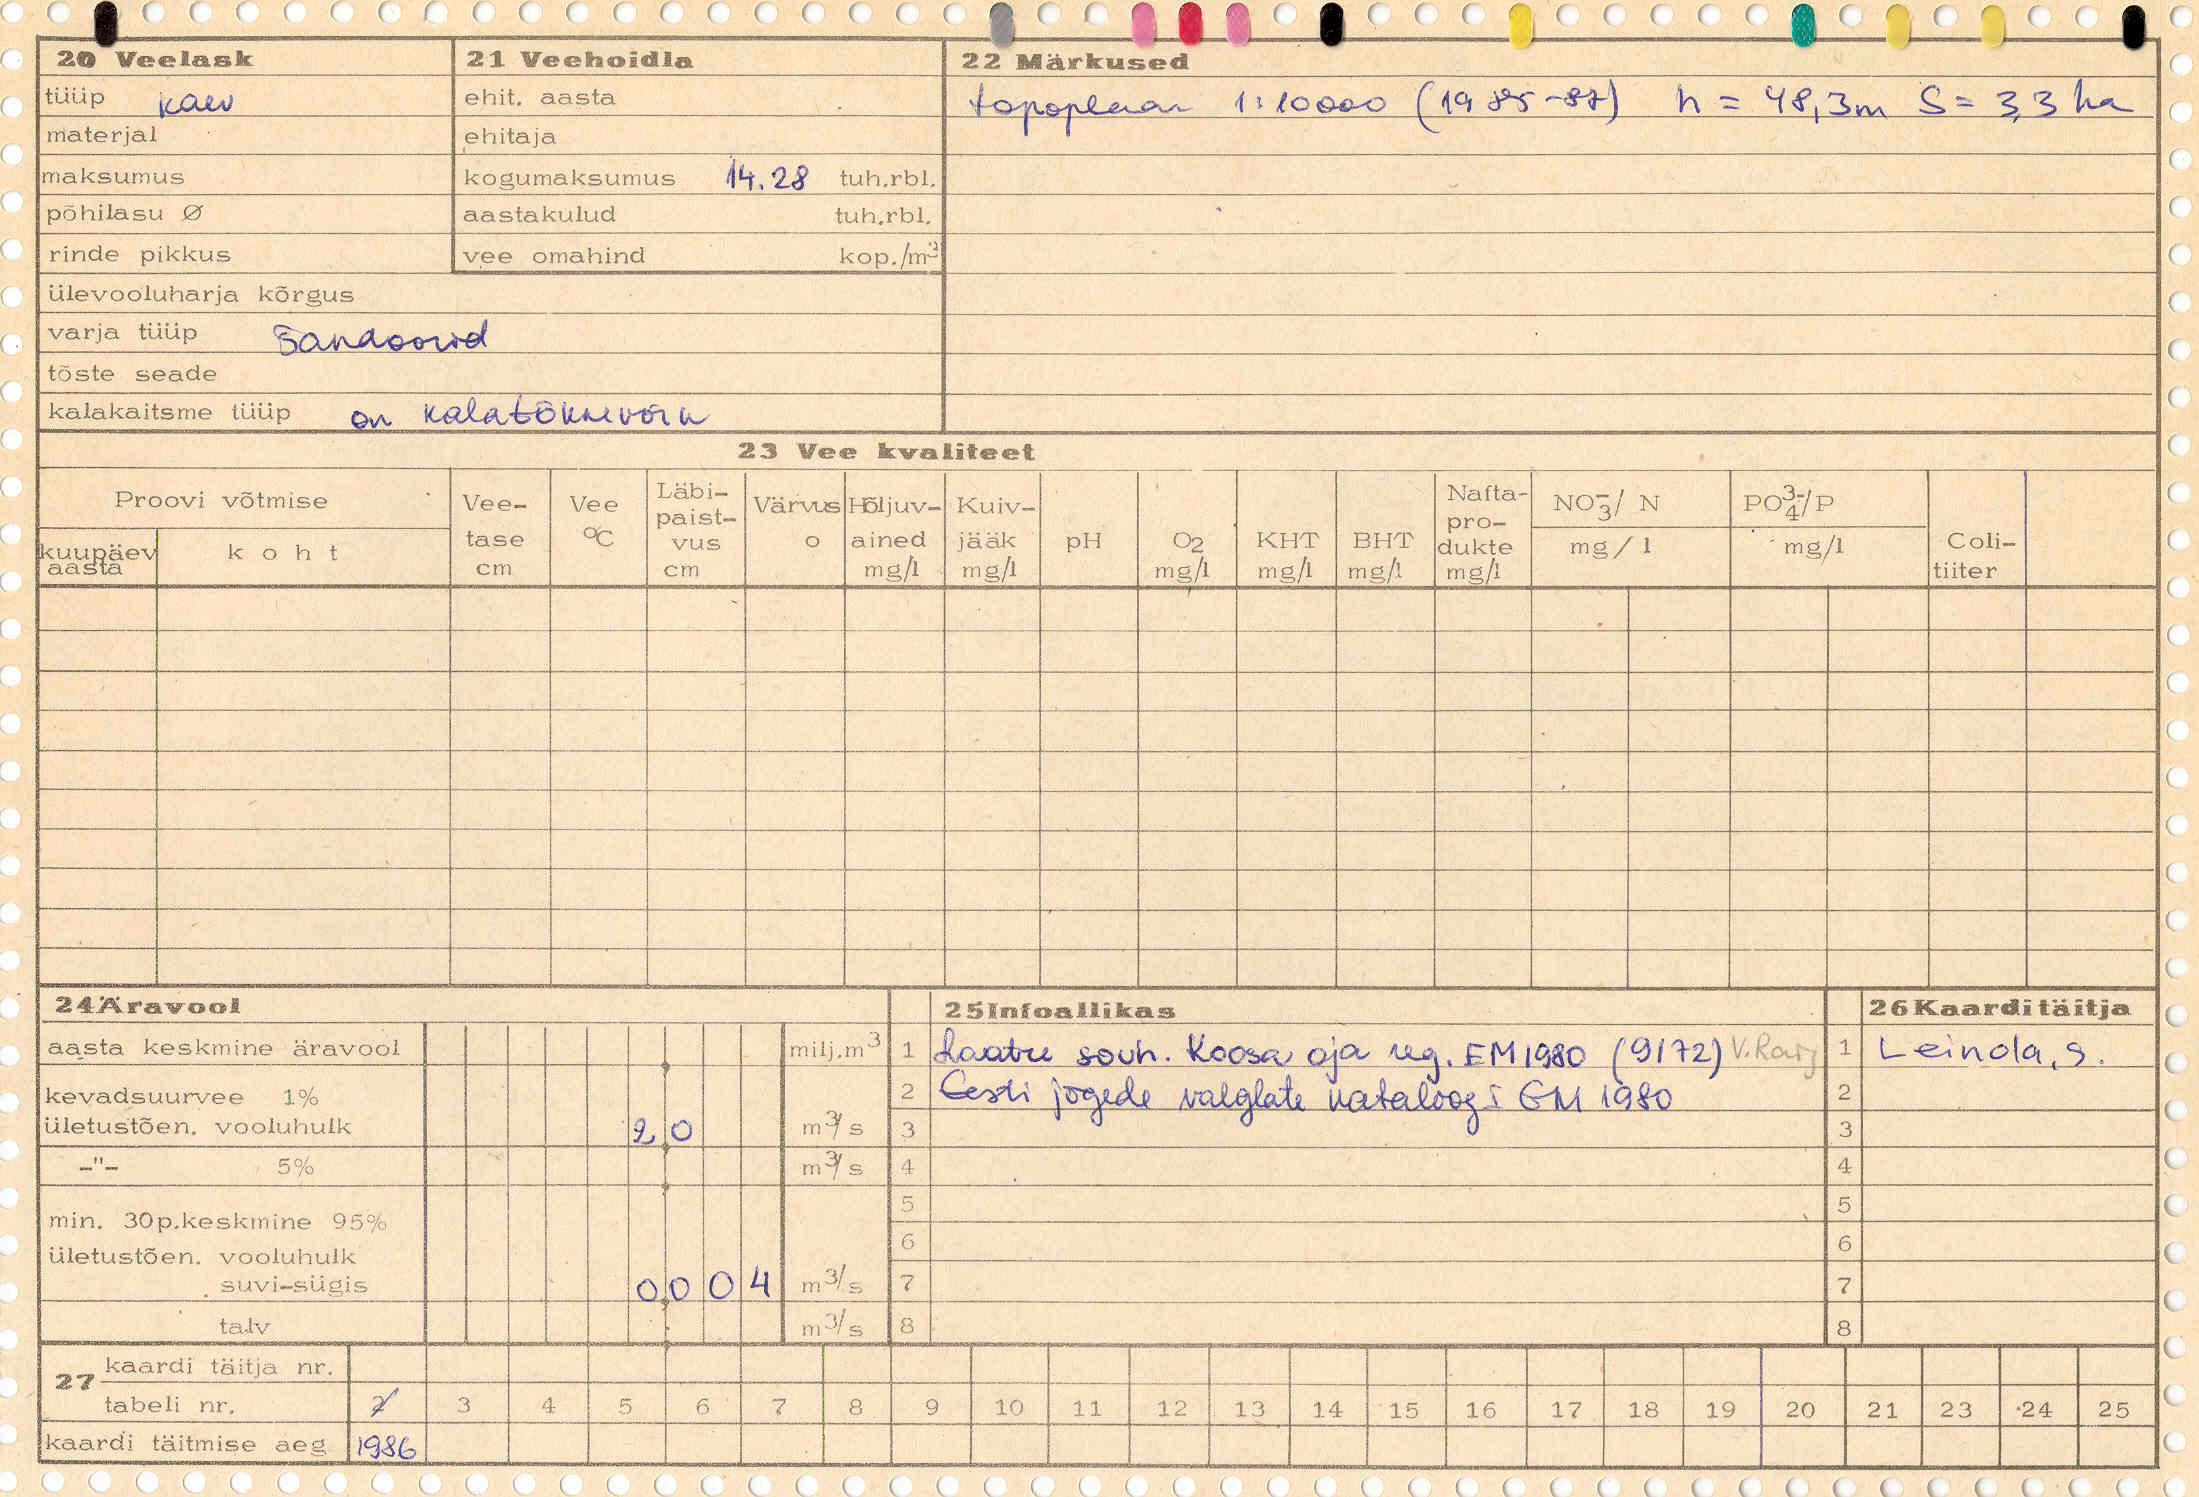 20 Veelask
tüüp kaev
materjal
maksumus
põhilasu Ø
rinde pikkus
ülevooluharja kõrgus
varja tüüp Šandoorid
tõste seade
kalakaitsme tüüp on kalatõkkevõrk
21 Veehoidla
ehit. aasta
ehitaja
kogumaksumus 14.28 tuh.rbl.
aastakulud tuh.rbl.
vee omahind kop./m³
22 Märkused
topoplaan 1:10000 (1985-87) h = 48,3m S = 3,3 ha
23 Vee kvaliteet
Proovi võtmise
kuupäev
aasta
koht
Vee-
tase
cm
Vee
°C
Läbi-
paist-
vus
cm
Värvus
o
Hõljuv-
ained
mg/l
Kuiv-
jääk
mg/l
pH
O2
mg/l
KHT
mg/l
BHT
mg/l
Nafta-
pro-
dukte
mg/l
NO₃⁻/ N
mg/l
PO₄³⁻/P
mg/l
Coli-
tiiter
24 Äravool
aasta keskmine äravool milj.m³
kevadsuurvee 1%
ületustõen. vooluhulk 2 0 m³/s
-"- 5% m³/s
min. 30p.keskmine 95%
ületustõen. vooluhulk
suvi-sügis 0 0 0 4 m³/s
talv m³/s
25 Infoallikas
1 Laatre sovh. Koosa oja reg. EM 1980 (9172)
2 Eesti jõgede valglate kataloog I EM 1980
3
4
5
6
7
8
26 Kaardi täitja
1 Leinola, S.
2
3
4
5
6
7
8
27 kaardi täitja nr.
tabeli nr. 2 3 4 5 6 7 8 9 10 11 12 13 14 15 16 17 18 19 20 21 23 24 25
kaardi täitmise aeg 1986